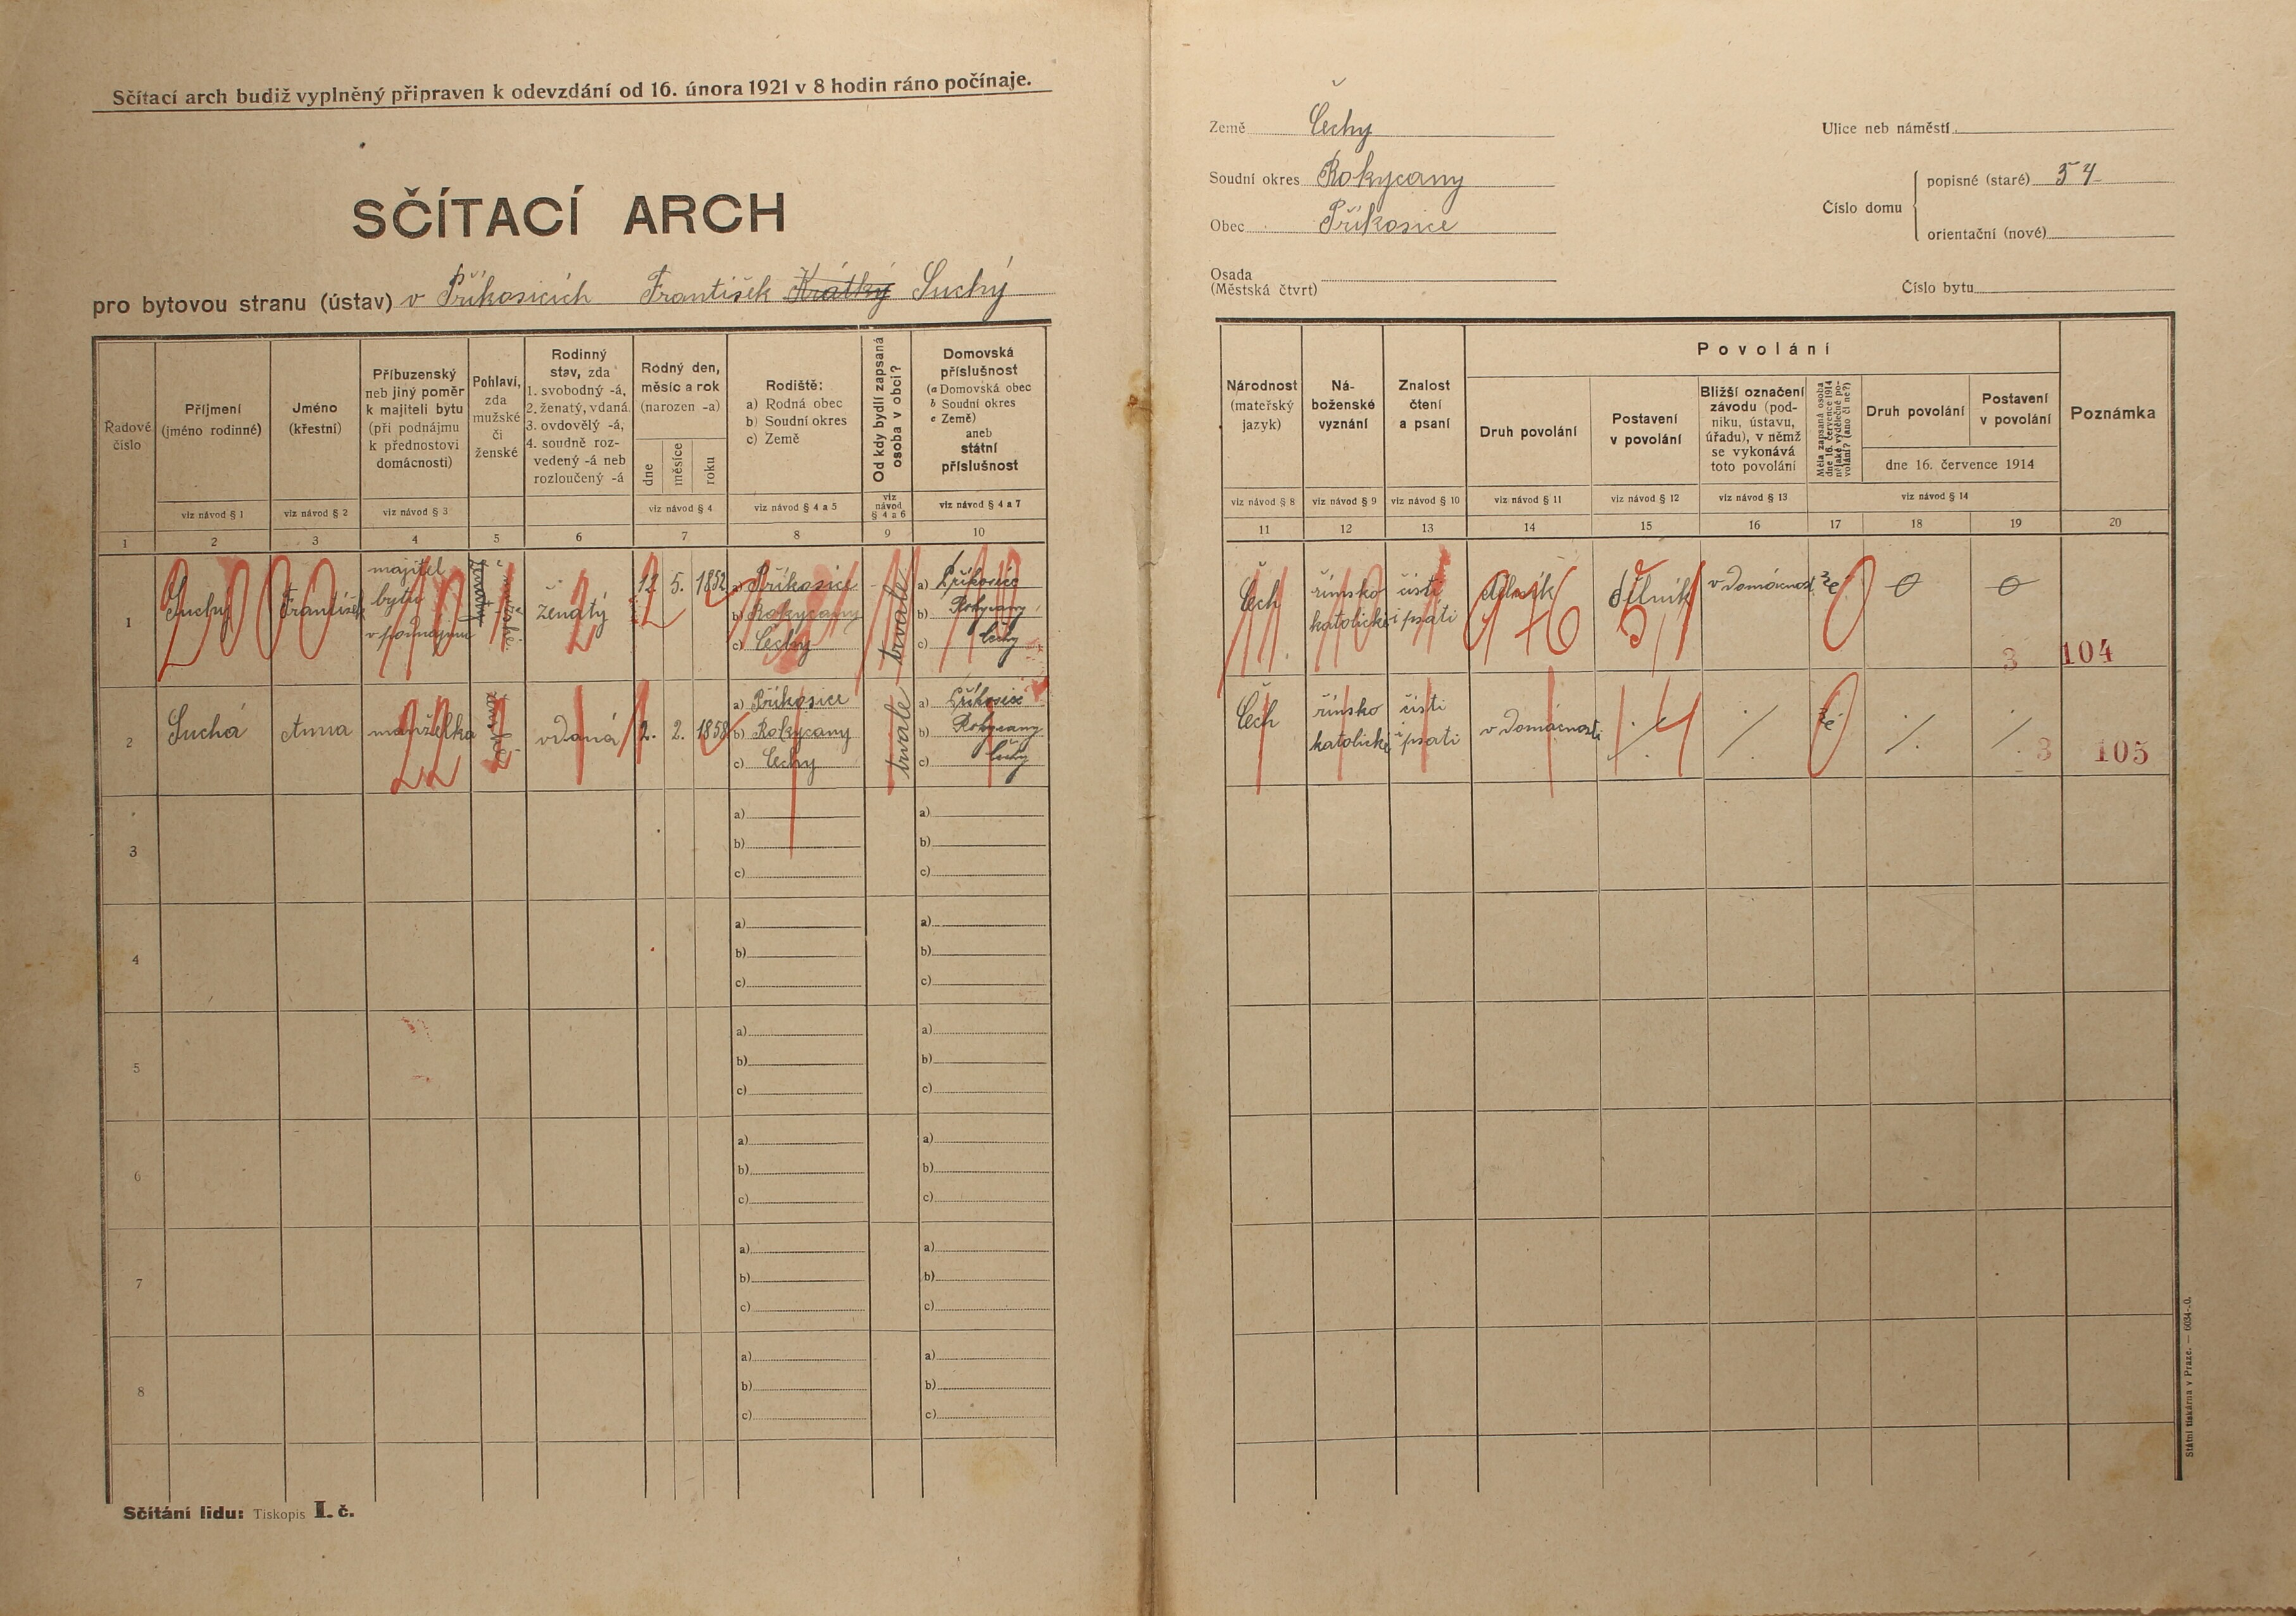 Sčítací arch budiž vyplněný připraven k odevzdání od 16. února 1921 v 8 hodin ráno počínaje.
SČÍTACÍ ARCH
pro bytovou stranu (ústav) v Příkosicích František Krátký Suchý
Země Čechy
Soudní okres Rokycany
Obec Příkosice
Osada
(Městská čtvrt)
Ulice neb náměstí
Číslo domu
popisné (staré) 54
orientační (nové)
Číslo bytu
Řadové
číslo
Příjmení
(jméno rodinné)
Jméno
(křestní)
Příbuzenský
neb jiný poměr
k majiteli bytu
(při podnájmu
k přednostovi
domácnosti)
Pohlaví,
zda
mužské
či
ženské
Rodinný
stav, zda
1. svobodný -á,
2. ženatý, vdaná,
3. ovdovělý -á,
4. soudně roz-
vedený -á neb
rozloučený -á
Rodný den,
měsíc a rok
(narozen -a)
dne
měsíce
roku
Rodiště:
a) Rodná obec
b) Soudní okres
c) Země
Od kdy bydlí zapsaná
osoba v obci?
Domovská
příslušnost
(a Domovská obec
b Soudní okres
c Země)
aneb
státní
příslušnost
viz návod § 1
viz návod § 2
viz návod § 3
viz návod § 4
viz návod § 4 a 5
viz
návod
§ 4 a 6
viz návod § 4 a 7
1 2 3 4 5 6 7 8 9 10
Národnost
(mateřský
jazyk)
Ná-
boženské
vyznání
Znalost
čtení
a psaní
Povolání
Druh povolání
Postavení
v povolání
Bližší označení
závodu (pod-
niku, ústavu,
úřadu), v němž
se vykonává
toto povolání
Měla zapsaná osoba
dne 16. července 1914
nějaké výdělečné po-
volání? (ano či ne?)
Druh povolání
Postavení
v povolání
dne 16. července 1914
Poznámka
viz návod § 8
viz návod § 9
viz návod § 10
viz návod § 11
viz návod § 12
viz návod § 13
viz návod § 14
11 12 13 14 15 16 17 18 19 20
1
Suchý
František
majitel
bytu
v podnájmu
ženatý
mužské
ženatý
12. 5. 1852
a) Příkosice
b) Rokycany
c) Čechy
trvale
a) Příkosice
b) Rokycany
c) Čechy
Čech
římsko
katolické
čísti
i psati
dělník
dělník
v domácnost
0
0
976
5,1
0
3 104
2
Suchá
Anna
manželka
ženské
vdaná
2. 2. 1858
a) Příkosice
b) Rokycany
c) Čechy
trvale
a) Příkosice
b) Rokycany
c) Čechy
Čech
římsko
katolické
čísti
i psati
v domácnosti
0
3 105
3
a)
b)
c)
a)
b)
c)
4
a)
b)
c)
a)
b)
c)
5
a)
b)
c)
a)
b)
c)
6
a)
b)
c)
a)
b)
c)
7
a)
b)
c)
a)
b)
c)
8
a)
b)
c)
a)
b)
c)
Sčítání lidu: Tiskopis I. č.
Státní tiskárna v Praze. — 6034-0.